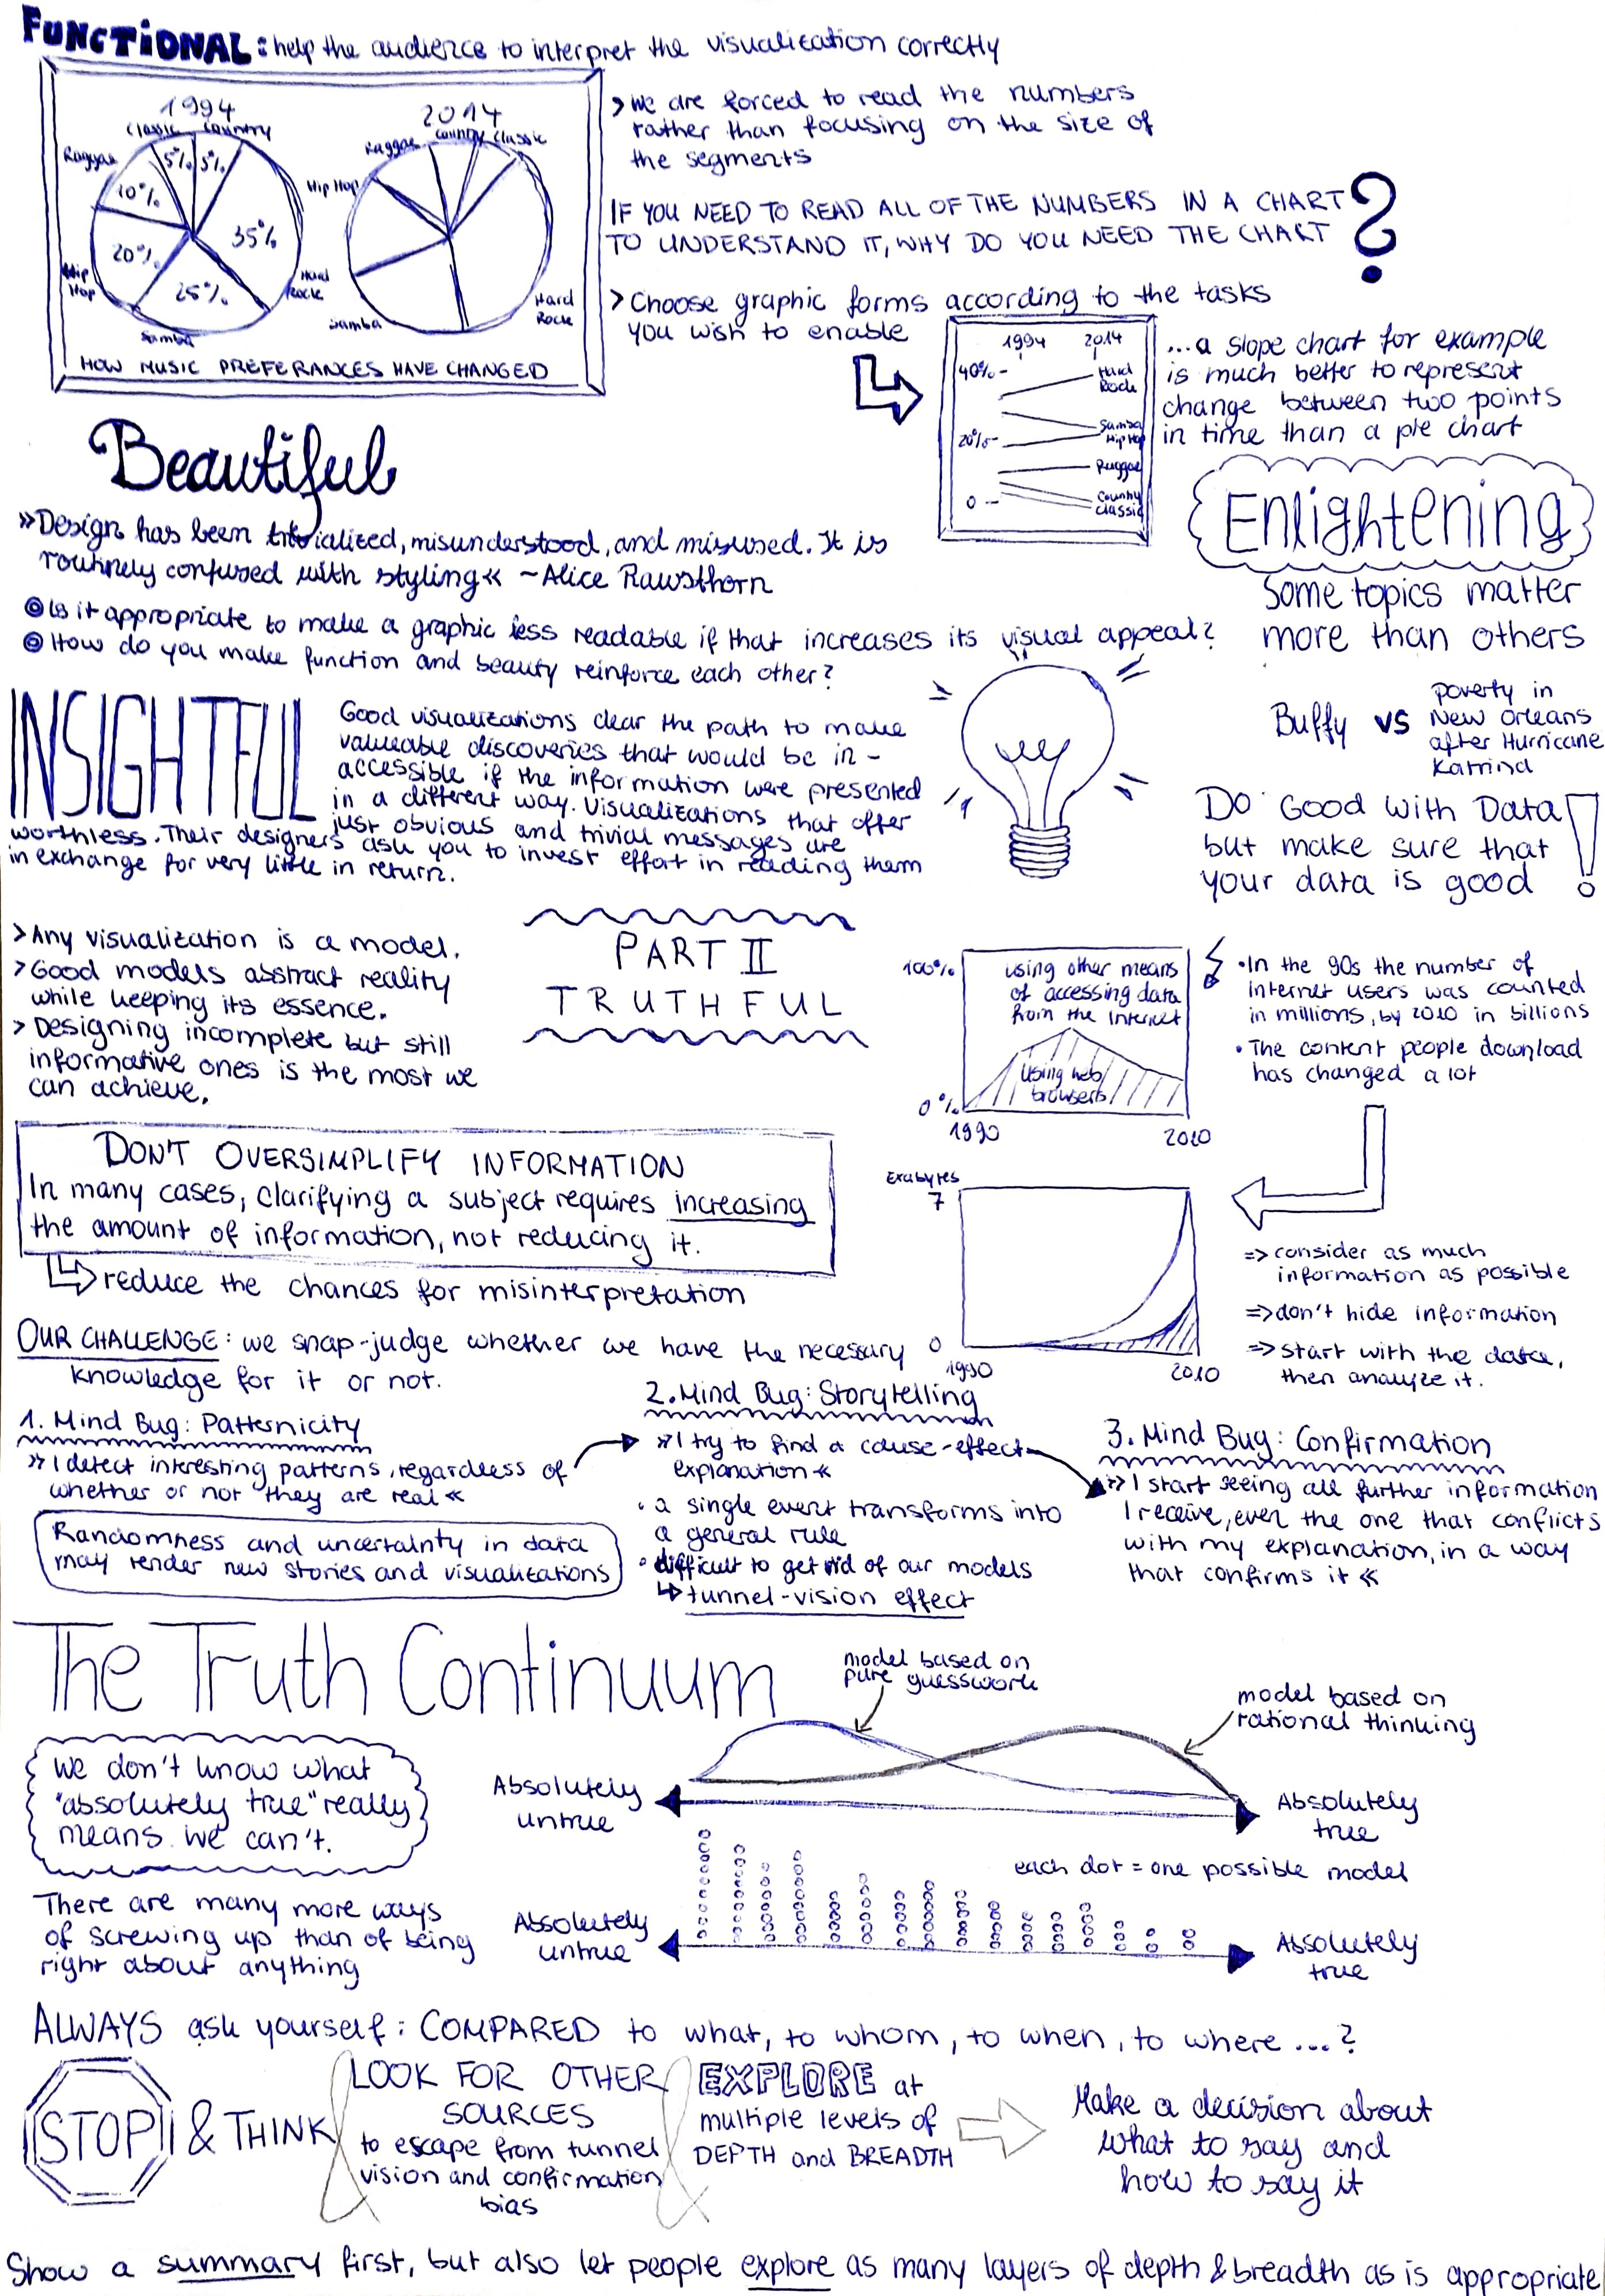 FUNCTIONAL: help the audience to interpret the visualization correctly
1994
Classic Country
Raggae
5% 5%
10%
35%
20%
Hip
Hop
25%
Hard
Rock
Samba
2014
Raggae Country Classic
Hip Hop
Samba
Hard
Rock
HOW MUSIC PREFERANCES HAVE CHANGED
> We are forced to read the numbers
rather than focusing on the size of
the segments
IF YOU NEED TO READ ALL OF THE NUMBERS IN A CHART
TO UNDERSTAND IT, WHY DO YOU NEED THE CHART ?
> Choose graphic forms according to the tasks
you wish to enable
1994 2014
40% -
Hard
Rock
Samba
20% -
Hip Hop
Raggae
Country
0 -
Classic
...a slope chart for example
is much better to represent
change between two points
in time than a pie chart
Beautiful
»Design has been trivialized, misunderstood, and misused. It is
routinely confused with styling« ~Alice Rawsthorn
Is it appropriate to make a graphic less readable if that increases its visual appeal?
How do you make function and beauty reinforce each other?
Enlightening
Some topics matter
more than others
Buffy vs
poverty in
New Orleans
after Hurricane
Katrina
Do Good with Data
but make sure that
your data is good !
INSIGHTFUL
Good visualizations clear the path to make
valueable discoveries that would be in-
accessible if the information were presented
in a different way. Visualizations that offer
just obvious and trivial messages are
worthless. Their designers ask you to invest effort in reading them
in exchange for very little in return.
> Any visualization is a model.
> Good models abstract reality
while keeping its essence.
> Designing incomplete but still
informative ones is the most we
can achieve.
PART II
TRUTHFUL
100%
using other means
of accessing data
from the Internet
Using web
browsers
0%
1990 2010
• In the 90s the number of
internet users was counted
in millions, by 2010 in billions
• The content people download
has changed a lot
DON'T OVERSIMPLIFY INFORMATION
In many cases, clarifying a subject requires increasing
the amount of information, not reducing it.
reduce the chances for misinterpretation
Exabytes
7
0
1990 2010
=> consider as much
information as possible
=> don't hide information
=> start with the data,
then analyze it.
OUR CHALLENGE: we snap-judge whether we have the necessary
knowledge for it or not.
1. Mind Bug: Patternicity
»I detect interesting patterns, regardless of
whether or not they are real«
Randomness and uncertainty in data
may render new stories and visualizations
2. Mind Bug: Storytelling
»I try to find a cause-effect
explanation«
• a single event transforms into
a general rule
• difficult to get rid of our models
tunnel-vision effect
3. Mind Bug: Confirmation
»I start seeing all further information
I receive, even the one that conflicts
with my explanation, in a way
that confirms it«
The Truth Continuum
We don't know what
"absolutely true" really
means. We can't.
There are many more ways
of screwing up than of being
right about anything
model based on
pure guesswork
model based on
rational thinking
Absolutely
untrue
Absolutely
true
each dot = one possible model
Absolutely
untrue
Absolutely
true
ALWAYS ask yourself: COMPARED to what, to whom, to when, to where...?
STOP & THINK
& LOOK FOR OTHER
SOURCES
to escape from tunnel
vision and confirmation
bias
& EXPLORE at
multiple levels of
DEPTH and BREADTH
Make a decision about
what to say and
how to say it
Show a summary first, but also let people explore as many layers of depth & breadth as is appropriate